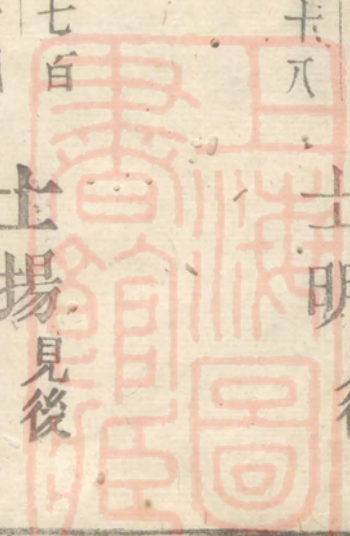 十八
士明
七百
士揚見後
上海圖
書館藏